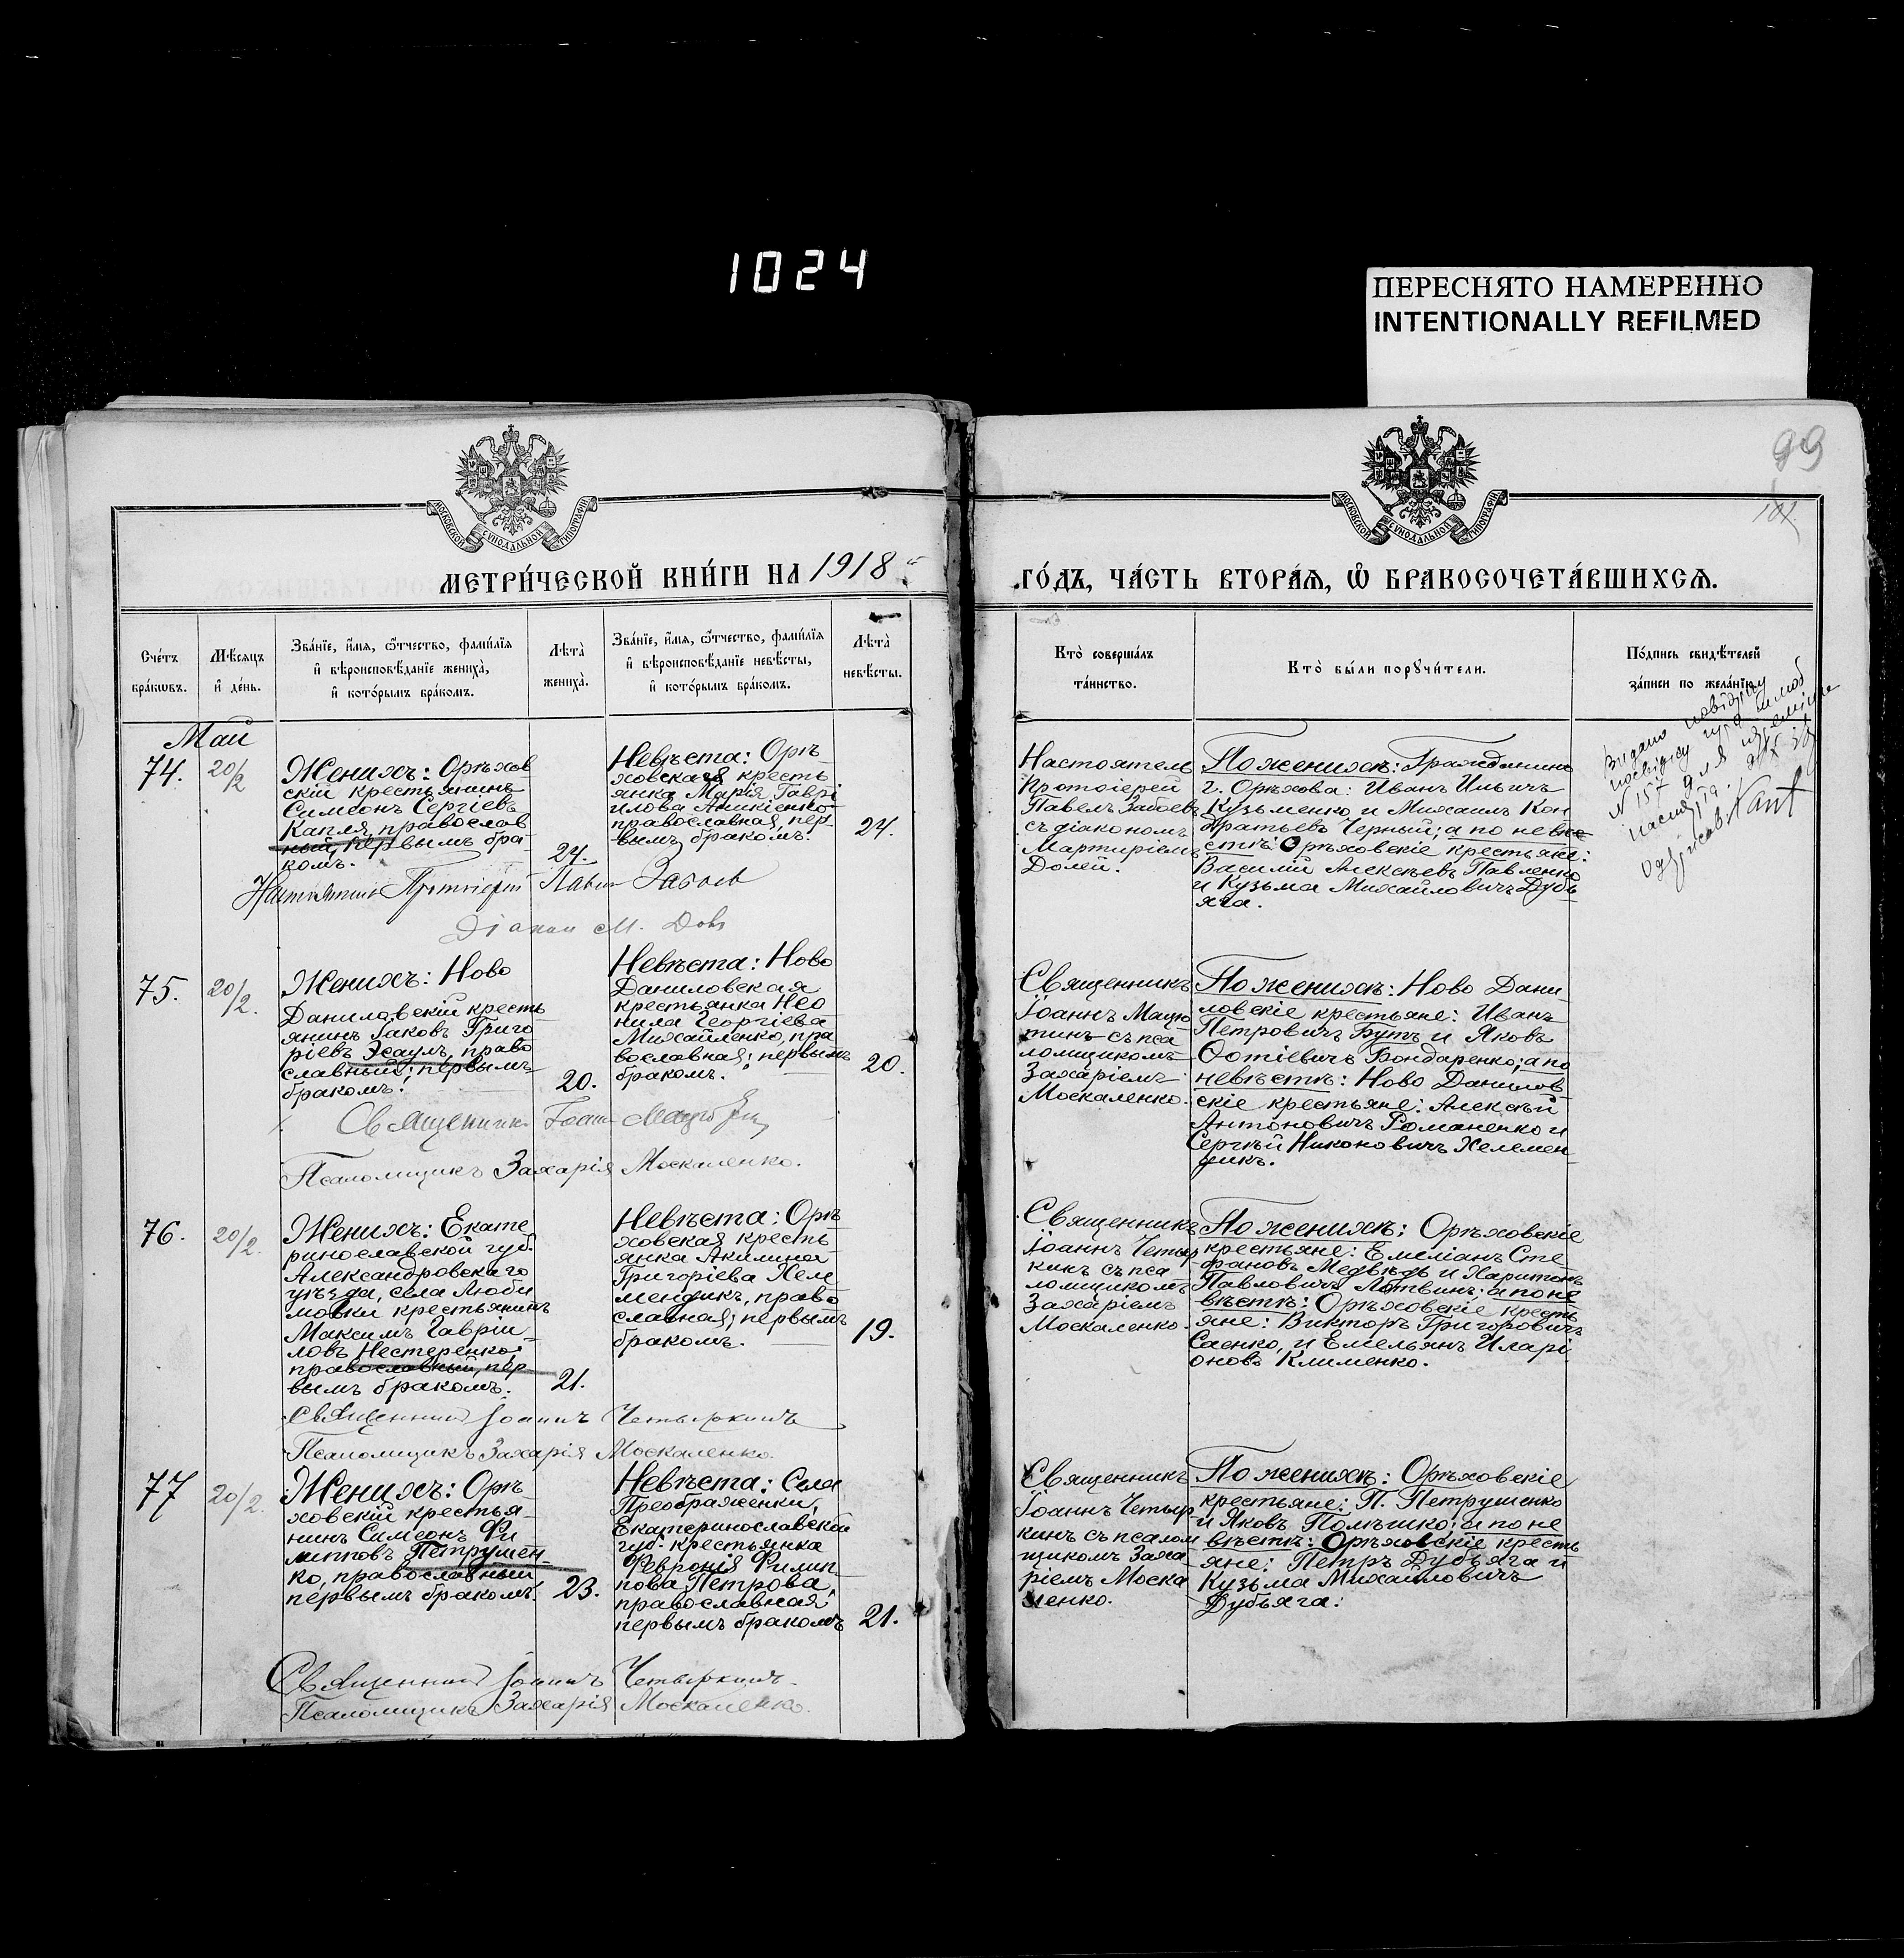 1024
ПЕРЕСНЯТО НАМЕРЕННО
INTENTIONALLY REFILMED
99
101
МОСКОВСКОЙ СѴНОДАЛЬНОЙ ТИПОГРАФІИ
МОСКОВСКОЙ СѴНОДАЛЬНОЙ ТИПОГРАФІИ
МЕТРИ́ЧЕСКОЙ КНИ́ГИ НА 1918
ГО́ДЪ, ЧА́СТЬ ВТОРА́Ѧ, Ѽ БРАКОСОЧЕТА́ВШИХСѦ.
Сче́тъ
бра́кѡвъ.
Мѣ́сѧцъ
и҆ де́нь.
Зва́нїе, и҆́мѧ, ѻ҆́тчество, фами́лїѧ
и҆ вѣроисповѣ́данїе жениха̀,
и҆ кото́рымъ бра́комъ.
Лѣ́та̀
жениха̀.
Зва́нїе, и҆́мѧ, ѻ҆́тчество, фами́лїѧ
и҆ вѣроисповѣ́данїе невѣ́сты,
и҆ кото́рымъ бра́комъ.
Лѣ́та̀
невѣ́сты.
Кто̀ соверша́лъ
та́инство.
Кто̀ бы́ли порꙋчи́тели.
По́дпись свидѣ́телей
за́писи по жела́нїю.
Май
74.
20/2
Женихъ: Орѣхов
скій крестьянинъ
Симеонъ Сергіевъ
Капля, православ
ный, первымъ бра-
комъ.
24.
Невѣста: Орѣ
ховская кресть
янка Марія Гаврі
илова Аникіенко
православная, пер
вымъ бракомъ.
24.
Настоятель
Протоіерей
Павелъ Забоевъ
съ діакономъ
Мартиріемъ
Долей.
По женихѣ: Граждмнинъ
г. Орѣхова: Иванъ Ильичъ
Кузьменко и Михаилъ Кон
дратьевъ Черный; а по невѣ
стѣ: Орѣховскіе крестьяне:
Василій Алексѣевъ Павленко
и Кузьма Михайловичъ Дубь
яга.
N 157 для
Настоятель Протоіерей Павелъ Забоев
Діакон М.
75.
20/2.
Женихъ: Ново
Даниловскій кресть
янинъ Іаковъ Григо
ріевъ Эсаулъ, право
славный; первымъ
бракомъ.
20.
Невѣста: Ново
Даниловская
крестьянка Нео
нила Георгіева
Михайленко, пра
вославная; первымъ
бракомъ.
20.
Священникъ
Іоаннъ Мацю
тинъ съ пса
ломщикомъ
Захаріемъ
Москаленко.
По женихѣ: Ново Дани
ловскіе крестьяне: Иванъ
Петровичъ Бутъ и Яковъ
Фотіевичъ Бондаренко; а по
невѣстѣ: Ново Данилов
скіе крестьяне: Алексѣй
Антоновичъ Романенко и
Сергѣй Никоновичъ Хелемен
дикъ.
Священникъ Іоанн
Псаломщикъ Захарія Москаленко.
76.
20/2.
Женихъ: Екате
ринославской губ.
Александровскаго
уѣзда, села Люби
мовки крестьянинъ
Максимъ Гавріи
ловъ Нестеренко,
православный, пер
вымъ бракомъ.
21.
Невѣста: Орѣ
ховская кресть
янка Акилина
Григоріева Хеле
мендикъ, право
славная; первымъ
бракомъ.
19.
Священникъ
Іоаннъ Четыр
кинъ съ пса
ломщикомъ
Захаріемъ
Москаленко.
По женихѣ: Орѣховскіе
крестьяне: Емеліанъ Сте
фановъ Медвѣдь и Харитонъ
Павловичъ Литвинъ; а по не
вѣстѣ: Орѣховскіе кресть
яне: Викторъ Григоровичъ
Саенко, и Емельянъ Иларі
оновъ Клименко.
Священникъ Іоаннъ Четыркинъ
Псаломщикъ Захарія Москаленко.
77
20/2.
Женихъ: Орѣ
ховскій крестья
нинъ Симеонъ Фи
липповъ Петрушен
ко, православный
первымъ бракомъ.
23.
Невѣста: Села
Преображенки,
Екатеринославской
губ. крестьянка
Февронія Филип
пова Петрова,
православная
первымъ бракомъ
21.
Священникъ
Іоаннъ Четыр
кинъ съ псалом
щикомъ Заха
ріемъ Моска
ленко.
По женихѣ: Орѣховскіе
крестьяне: П. Петрушенко
и Яковъ Помѣшко; а по не
вѣстѣ: Орѣховскіе кресть
яне: Петръ Дубьяга и
Кузьма Михайловичъ
Дубьяга.
Священникъ Іоаннъ Четыркинъ.
Псаломщикъ Захарія Москаленко.